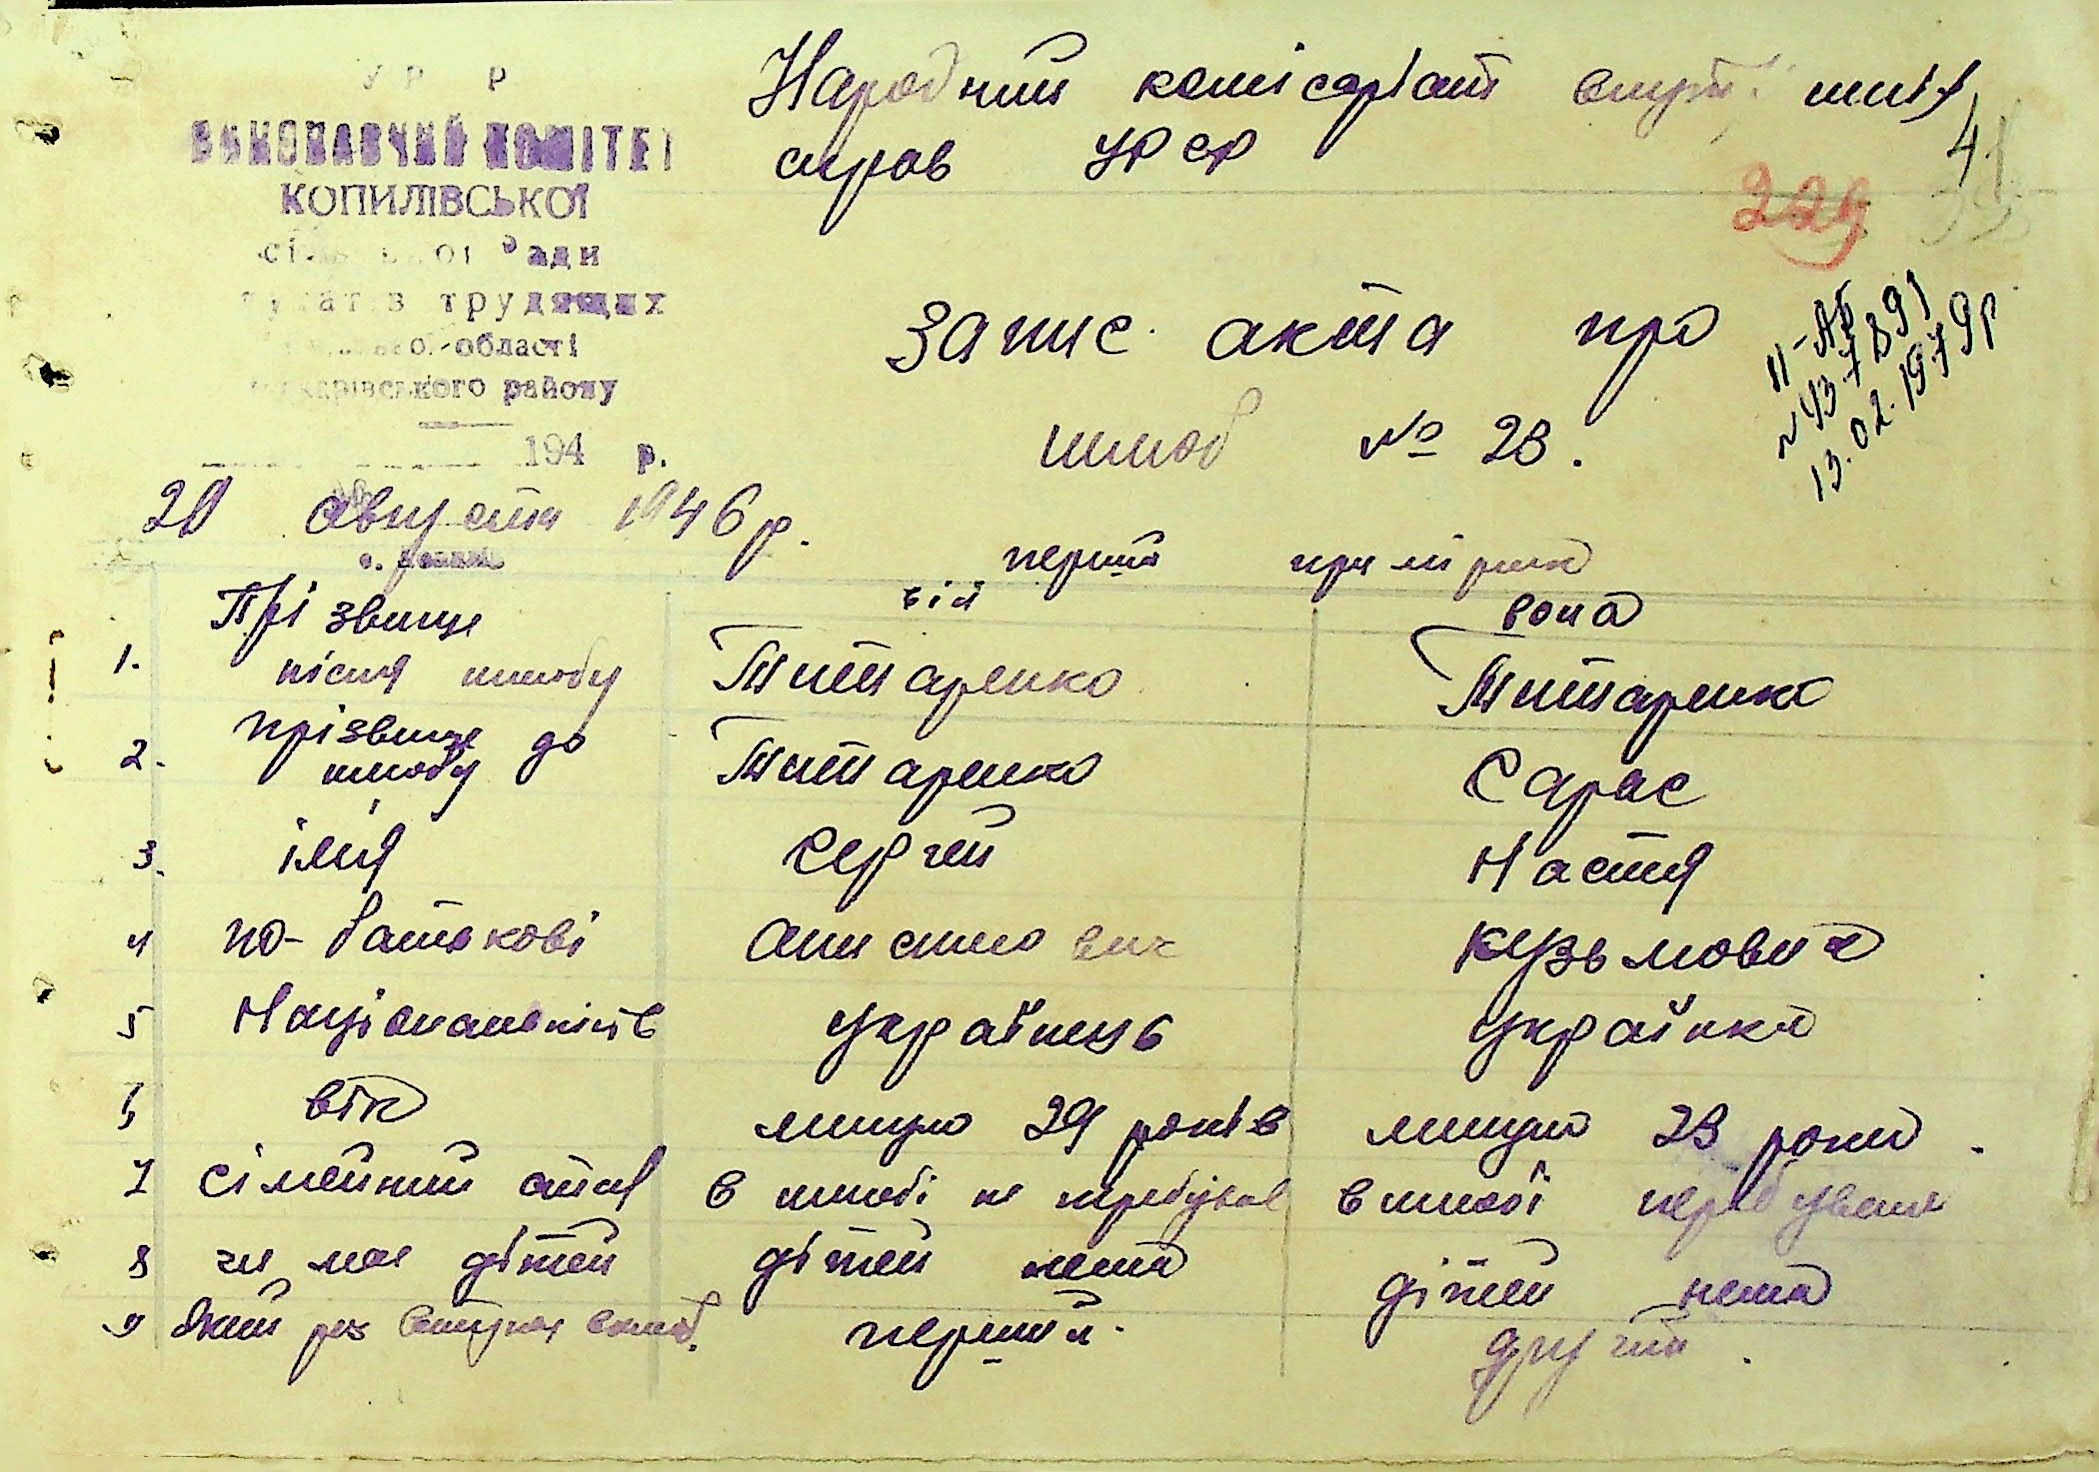 У Р Р
ВИКОНАВЧИЙ КОМІТЕТ
КОПИЛІВСЬКОЇ
Ради
трудящих
області
району
194 р.
Народний комісаріат внутрішніх
справ УРСР
41
229
Запис акта про
шлюб № 23.
II-АБ
13.02.1979р
20 августа 1946 р.
перший примірник
він вона
1. Прізвище
після шлюбу Титаренко Титаренко
2. прізвище до
шлюбу Титаренко Сарас
3. ім'я Сергій Настя
4 по-батькові Кузьмовна
5 Національність українець українка
6 вік минуло 29 років минуло 23 роки.
7 сімейний стан в шлюбі не перебував в шлюбі перебувала
8 чи має дітей дітей нема дітей нема
9 Який раз вступає в шлюб. перший. другий.